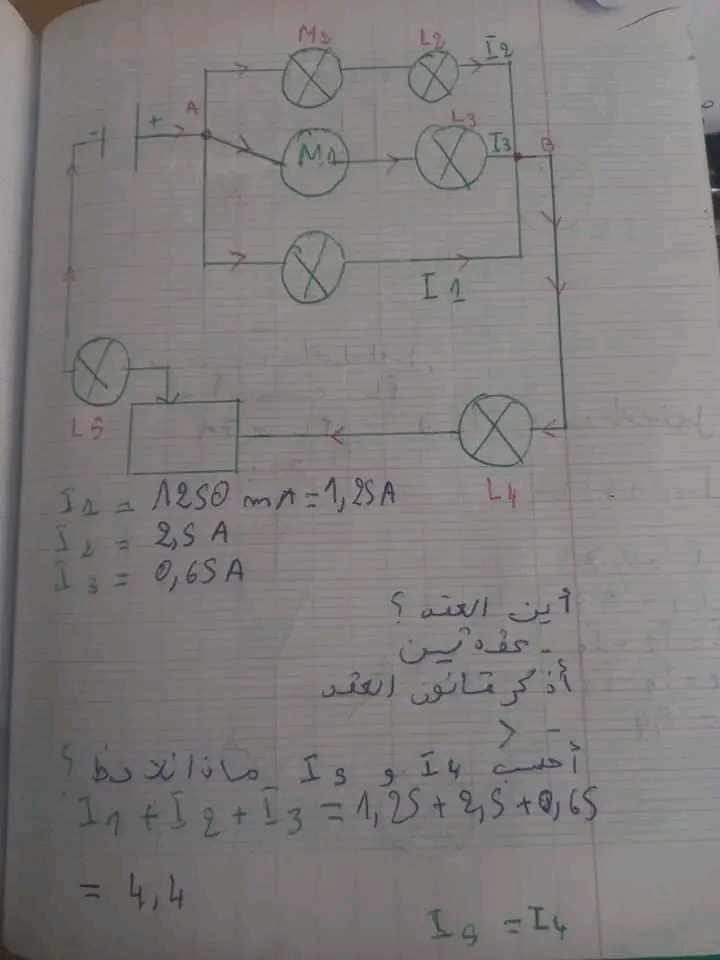 M2
L2
I2
A
+
-
M1
L3
I3
B
I1
L5
L4
I1 = 1250 mA = 1,25A
I2 = 2,5 A
I3 = 0,65A
أين العقد ؟
- عقدتين
أذكر قانون العقد
- >
أحسب I4 و I5 ماذا نلاحظ ؟
I1 + I2 + I3 = 1,25 + 2,5 + 0,65
= 4,4
I5 = I4